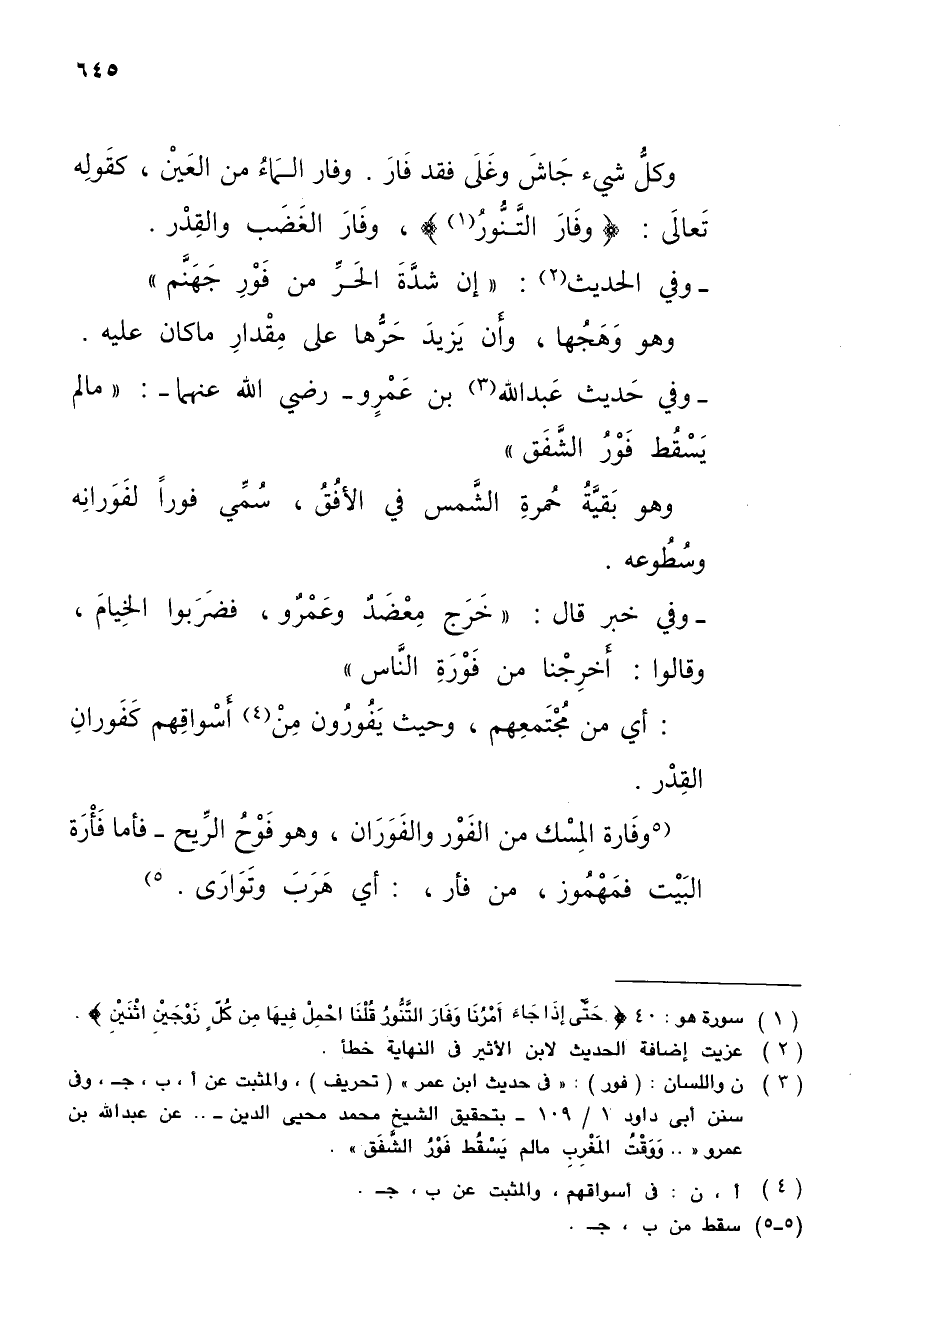 ٦٤٥
وكلُّ شيء جَاشَ وغَلَى فقد فَارَ . وفار الـمَاءُ من العَيْنْ ، كقَولِه
تَعالَى : ﴿ وفَارَ التَّـنُّورُ(١) ﴾ ، وفَارَ الغَضَب والقِدْر .
ـ وفي الحديث(٢) : « إن شدَّةَ الحَـرِّ من فَوْرِ جَهَنَّم »
وهو وَهَجُها ، وأَن يَزيدَ حَرُّها على مِقْدارِ ماكان عليه .
ـ وفي حَديث عَبدالله(٣) بن عَمْرٍو ـ رضي الله عنهما ـ : « مالم
يَسْقُط فَوْرُ الشَّفَق »
وهو بَقيَّةُ حُمرةِ الشَّمس في الأفُقُ ، سُمِّي فوراً لفَوَرانِه
وسُطُوعه .
ـ وفي خبر قال : « خَرَج مِعْضَدٌ وعَمْرٌو ، فضَرَبوا الخِيامَ ،
وقالوا : أَخرِجْنا من فَوْرَةِ النَّاس »
: أي من مُجْتَمعِهم ، وحيث يَفُورُون مِنْ(٤) أَسْواقِهم كَفَورانِ
القِدْر .
(٥وفَارة المِسْك من الفَوْر والفَوَرَان ، وهو فَوْحُ الرِّيح ـ فأما فَأْرَة
البَيْت فمَهْمُوز ، من فأر ، : أي هَرَبَ وتَوَارَى . ٥)
(١) سورة هو : ٤٠ ﴿ حَتَّى إذَا جَاءَ أَمْرُنَا وَفَارَ التَّنُّورُ قُلْنَا احْمِلْ فِيهَا مِن كُلٍّ زَوْجَيْنِ اثْنَيْنِ ﴾ .
(٢) عزيت إضافة الحديث لابن الأثير فى النهاية خطأ .
(٣) ن واللسان : (فور) : « فى حديث ابن عمر » (تحريف) ، والمثبت عن أ ، ب ، جـ ، وفى
سنن أبى داود ١ / ١٠٩ ـ بتحقيق الشيخ محمد محيى الدين ـ .. عن عبدالله بن
عمرو « .. وَوَقْتُ المَغْرِبِ مالم يَسْقُط فَوْرُ الشَّفَق » .
(٤) أ ، ن : فى أسواقهم ، والمثبت عن ب ، جـ .
(٥ـ٥) سقط من ب ، جـ .